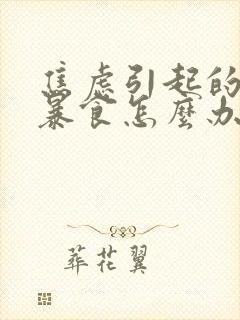 焦虑引起的
暴食怎麼办
葬花翼